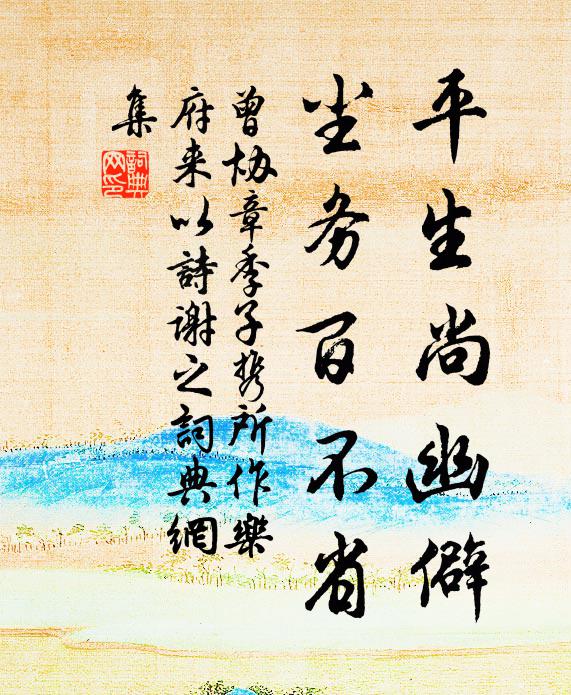 平生尚幽僻
尘务百不省
曾协章季子携所作樂
府来以詩谢之詞典網
集
詞典
网印